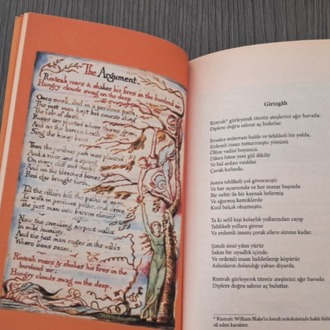 The Argument.
Rintrah roars & shakes his fires in the burdend air;
Hungry clouds swag on the deep
Once meek, and in a perilous path,
The just man kept his course along
The vale of death.
Roses are planted where thorns grow,
And on the barren heath
Sing the honey bees.
Then the perilous path was planted:
And a river, and a spring
On every cliff and tomb;
And on the bleached bones
Red clay brought forth.
Till the villain left the paths of ease,
To walk in perilous paths, and drive
The just man into barren climes.
Now the sneaking serpent walks
In mild humility.
And the just man rages in the wilds
Where lions roam.
Rintrah roars & shakes his fires in the
burdend air;
Hungry clouds swag on the deep.
Girizgâh
Rintrah* gürleyerek titretir ateşlerini ağır havada:
Diplere doğru salınır aç bulutlar.
Evvelce mütevazı halde ve tehlikeli bir yolda,
Erdemli insan tutturmuştu rotasını
Ölüm vadisi boyunca.
Diken biten yere gül dikilir
Ve bal arıları vızıldar
Çorak kırlarda.
Sonra tehlikeli yol göverdi:
Ve her uçurumda ve her mezar başında
Bir nehir ile bir kaynak belirdi
Ve ağarmış kemiklerde
Kızıl balçık oluşmuştu.
Ta ki sefil kişi kolaylık yollarından cayıp
Tehlikeli yollara girene
Ve erdemli insanı çorak ellere sürene kadar.
Şimdi sinsi yılan yürür
Sakin bir uysallık içinde;
Ve erdemli insan hiddetlenip köpürür
Aslanların dolandığı yaban diyarda.
Rintrah gürleyerek titretir ateşlerini ağır havada:
Diplere doğru salınır aç bulutlar.
* Rintrah: William Blake'in kendi mitolojisinin